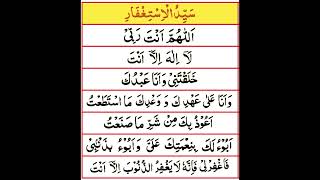 سَيِّدُ الْاِسْتِغْفَارِ
اَللّٰهُمَّ اَنْتَ رَبِّیْ
لَا اِلٰهَ اِلَّا اَنْتَ
خَلَقْتَنِیْ وَاَنَا عَبْدُكَ
وَاَنَا عَلٰی عَهْدِكَ وَ وَعْدِكَ مَا اسْتَطَعْتُ
اَعُوْذُ بِكَ مِنْ شَرِّ مَا صَنَعْتُ
اَبُوْءُ لَكَ بِنِعْمَتِكَ عَلَیَّ وَ اَبُوْءُ بِذَنْۢبِیْ
فَاغْفِرْلِیْ فَاِنَّهٗ لَا يَغْفِرُ الذُّنُوْبَ اِلَّا اَنْتَ